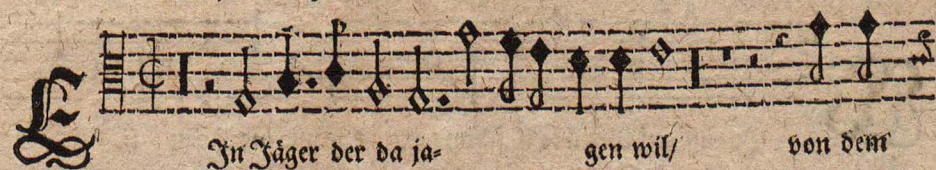 EIn Jäger der da ja⸗ gen wil/ von dem